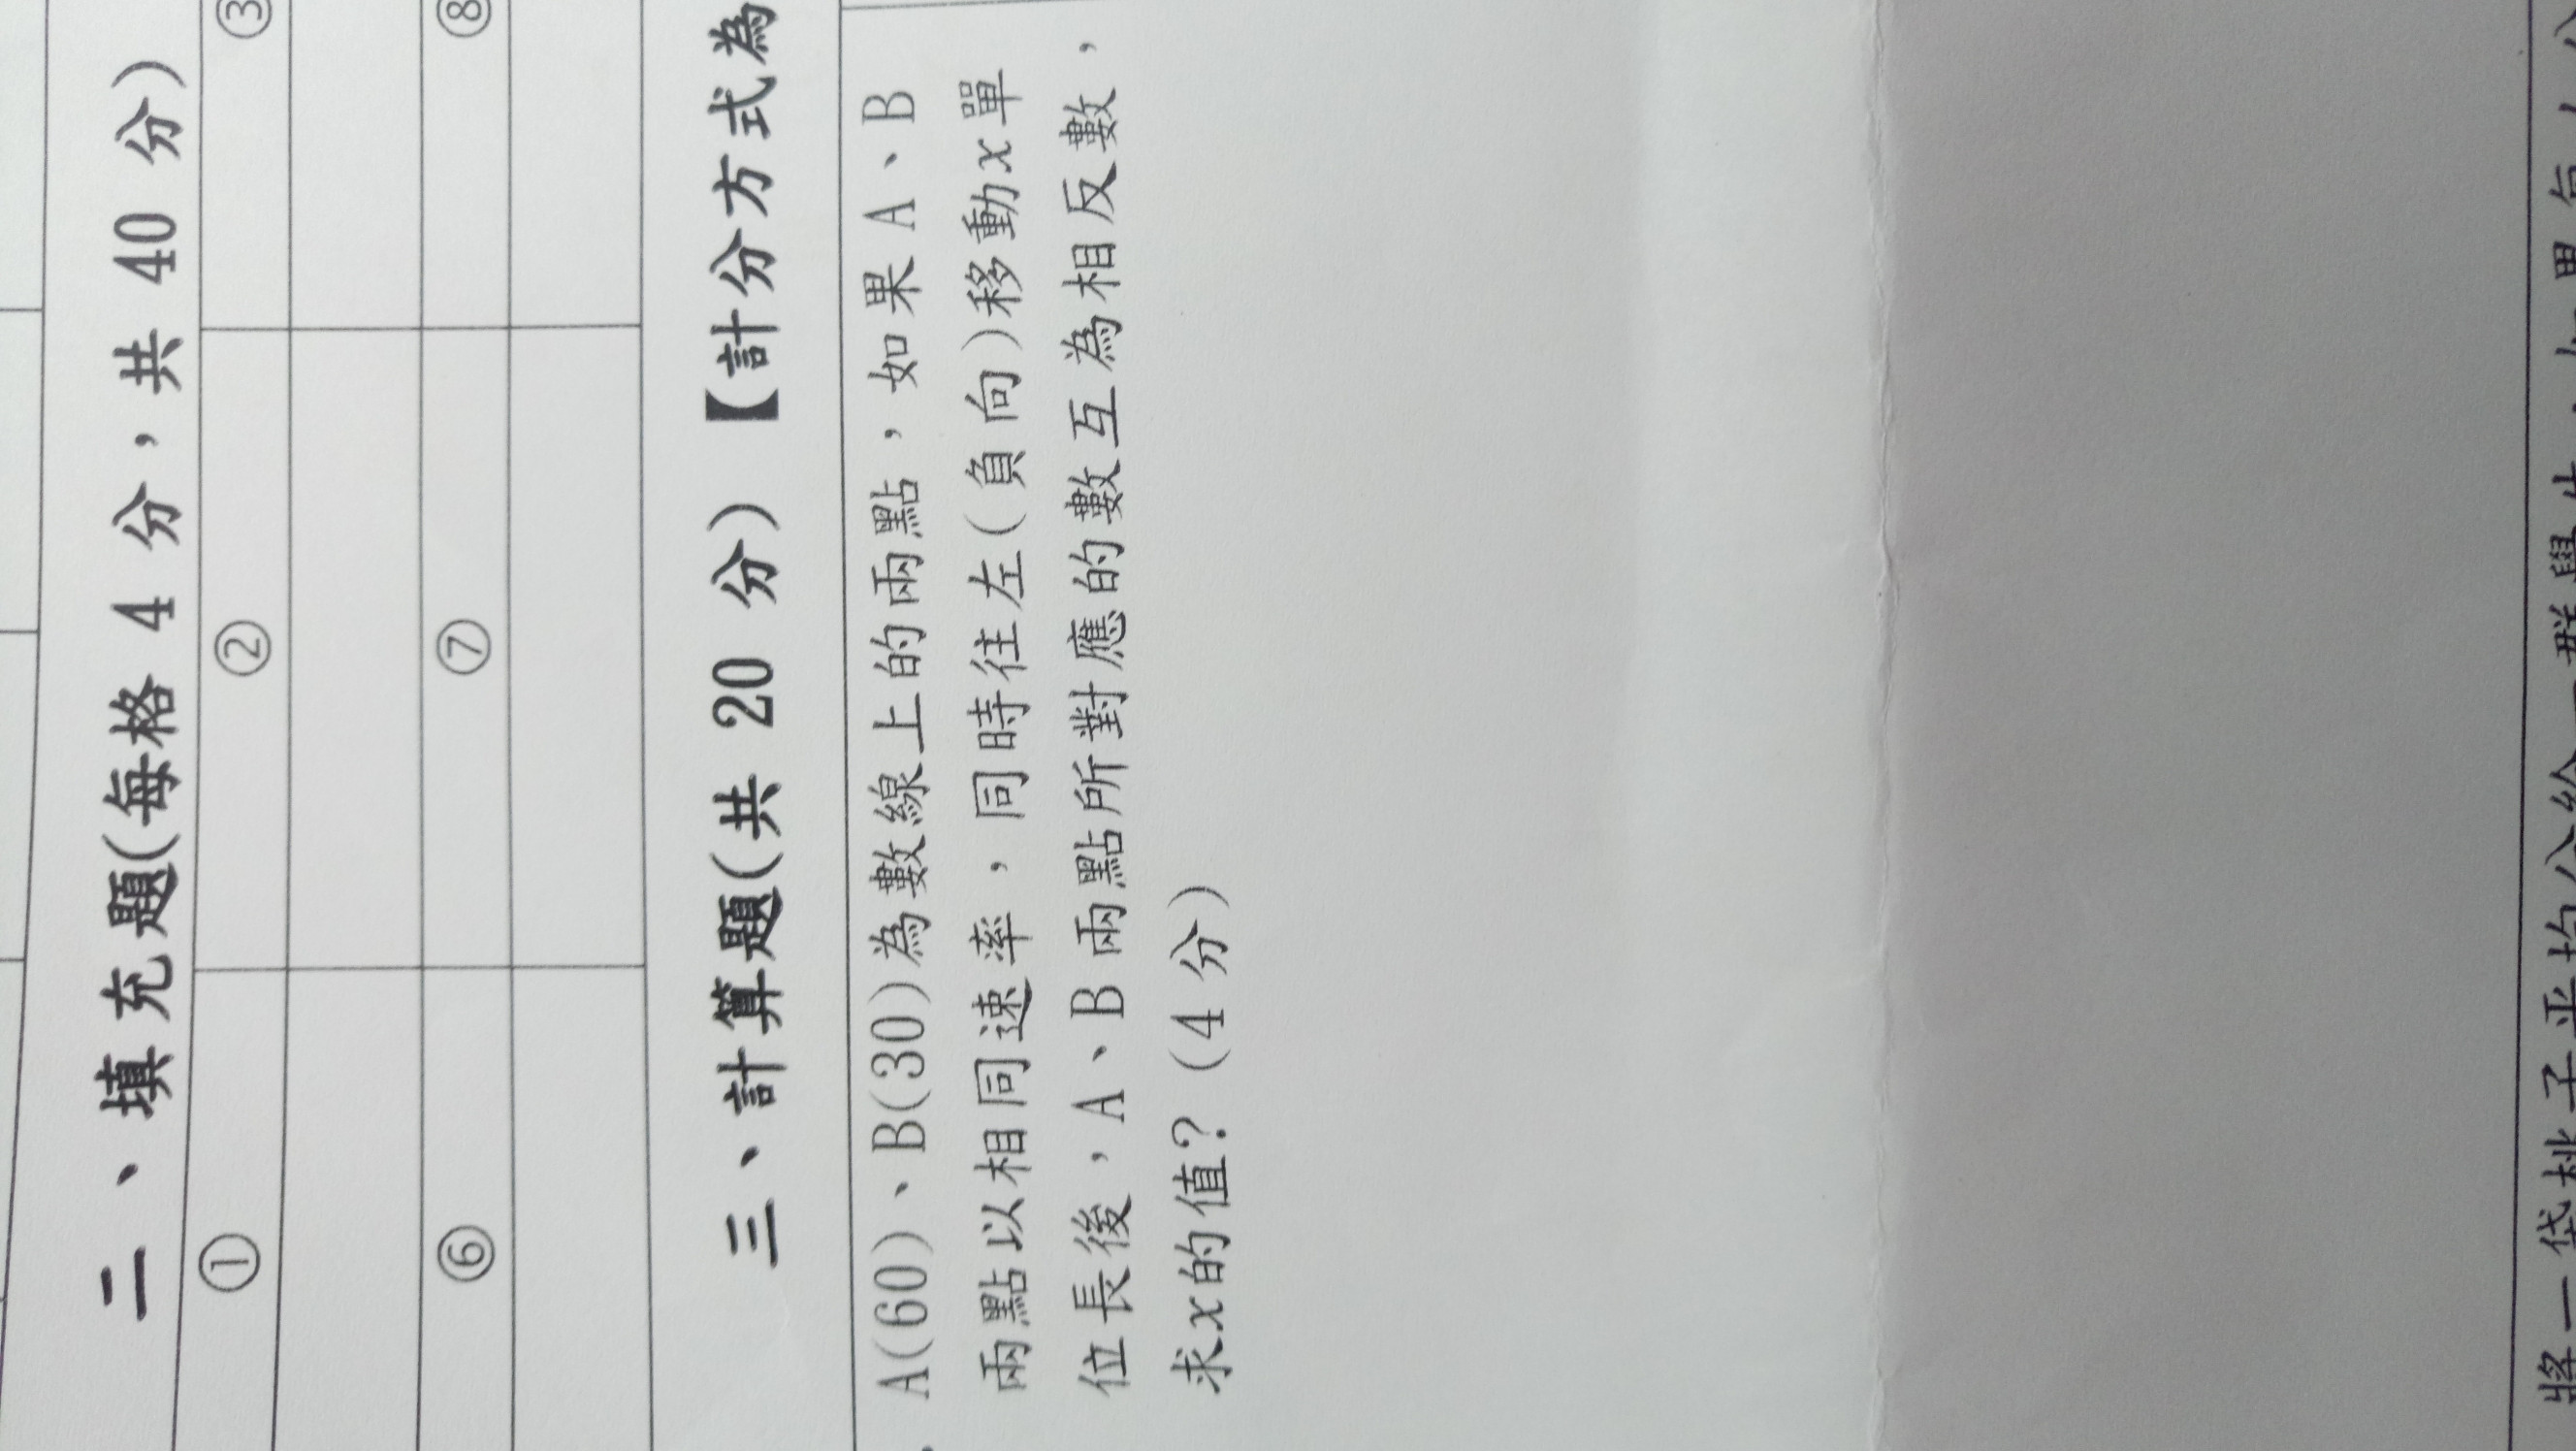 二、填充題(每格 4 分，共 40 分)
①
②
③
⑥
⑦
⑧
三、計算題(共 20 分)【計分方式為
A(60)、B(30)為數線上的兩點，如果 A、B
兩點以相同速率，同時往左(負向)移動x單
位長後，A、B 兩點所對應的數互為相反數，
求x的值？(4 分)
將一袋桃子平均分給一群學生，如果每人分